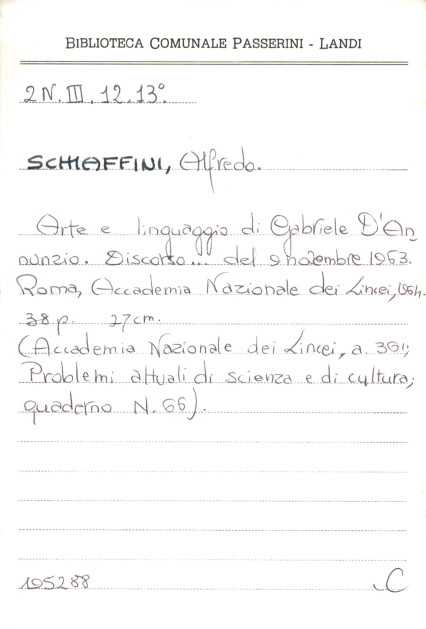 BIBLIOTECA COMUNALE PASSERINI - LANDI
2N. III. 12.13°.
SCHIAFFINI, Alfredo.
Arte e linguaggio di Gabriele D'An
nunzio. Discorso... del 9 novembre 1963.
Roma, Accademia Nazionale dei Lincei, 1964.
38 p. 27 cm.
(Accademia Nazionale dei Lincei, a. 361;
Problemi attuali di scienza e di cultura;
quaderno N. 66).
105288 C